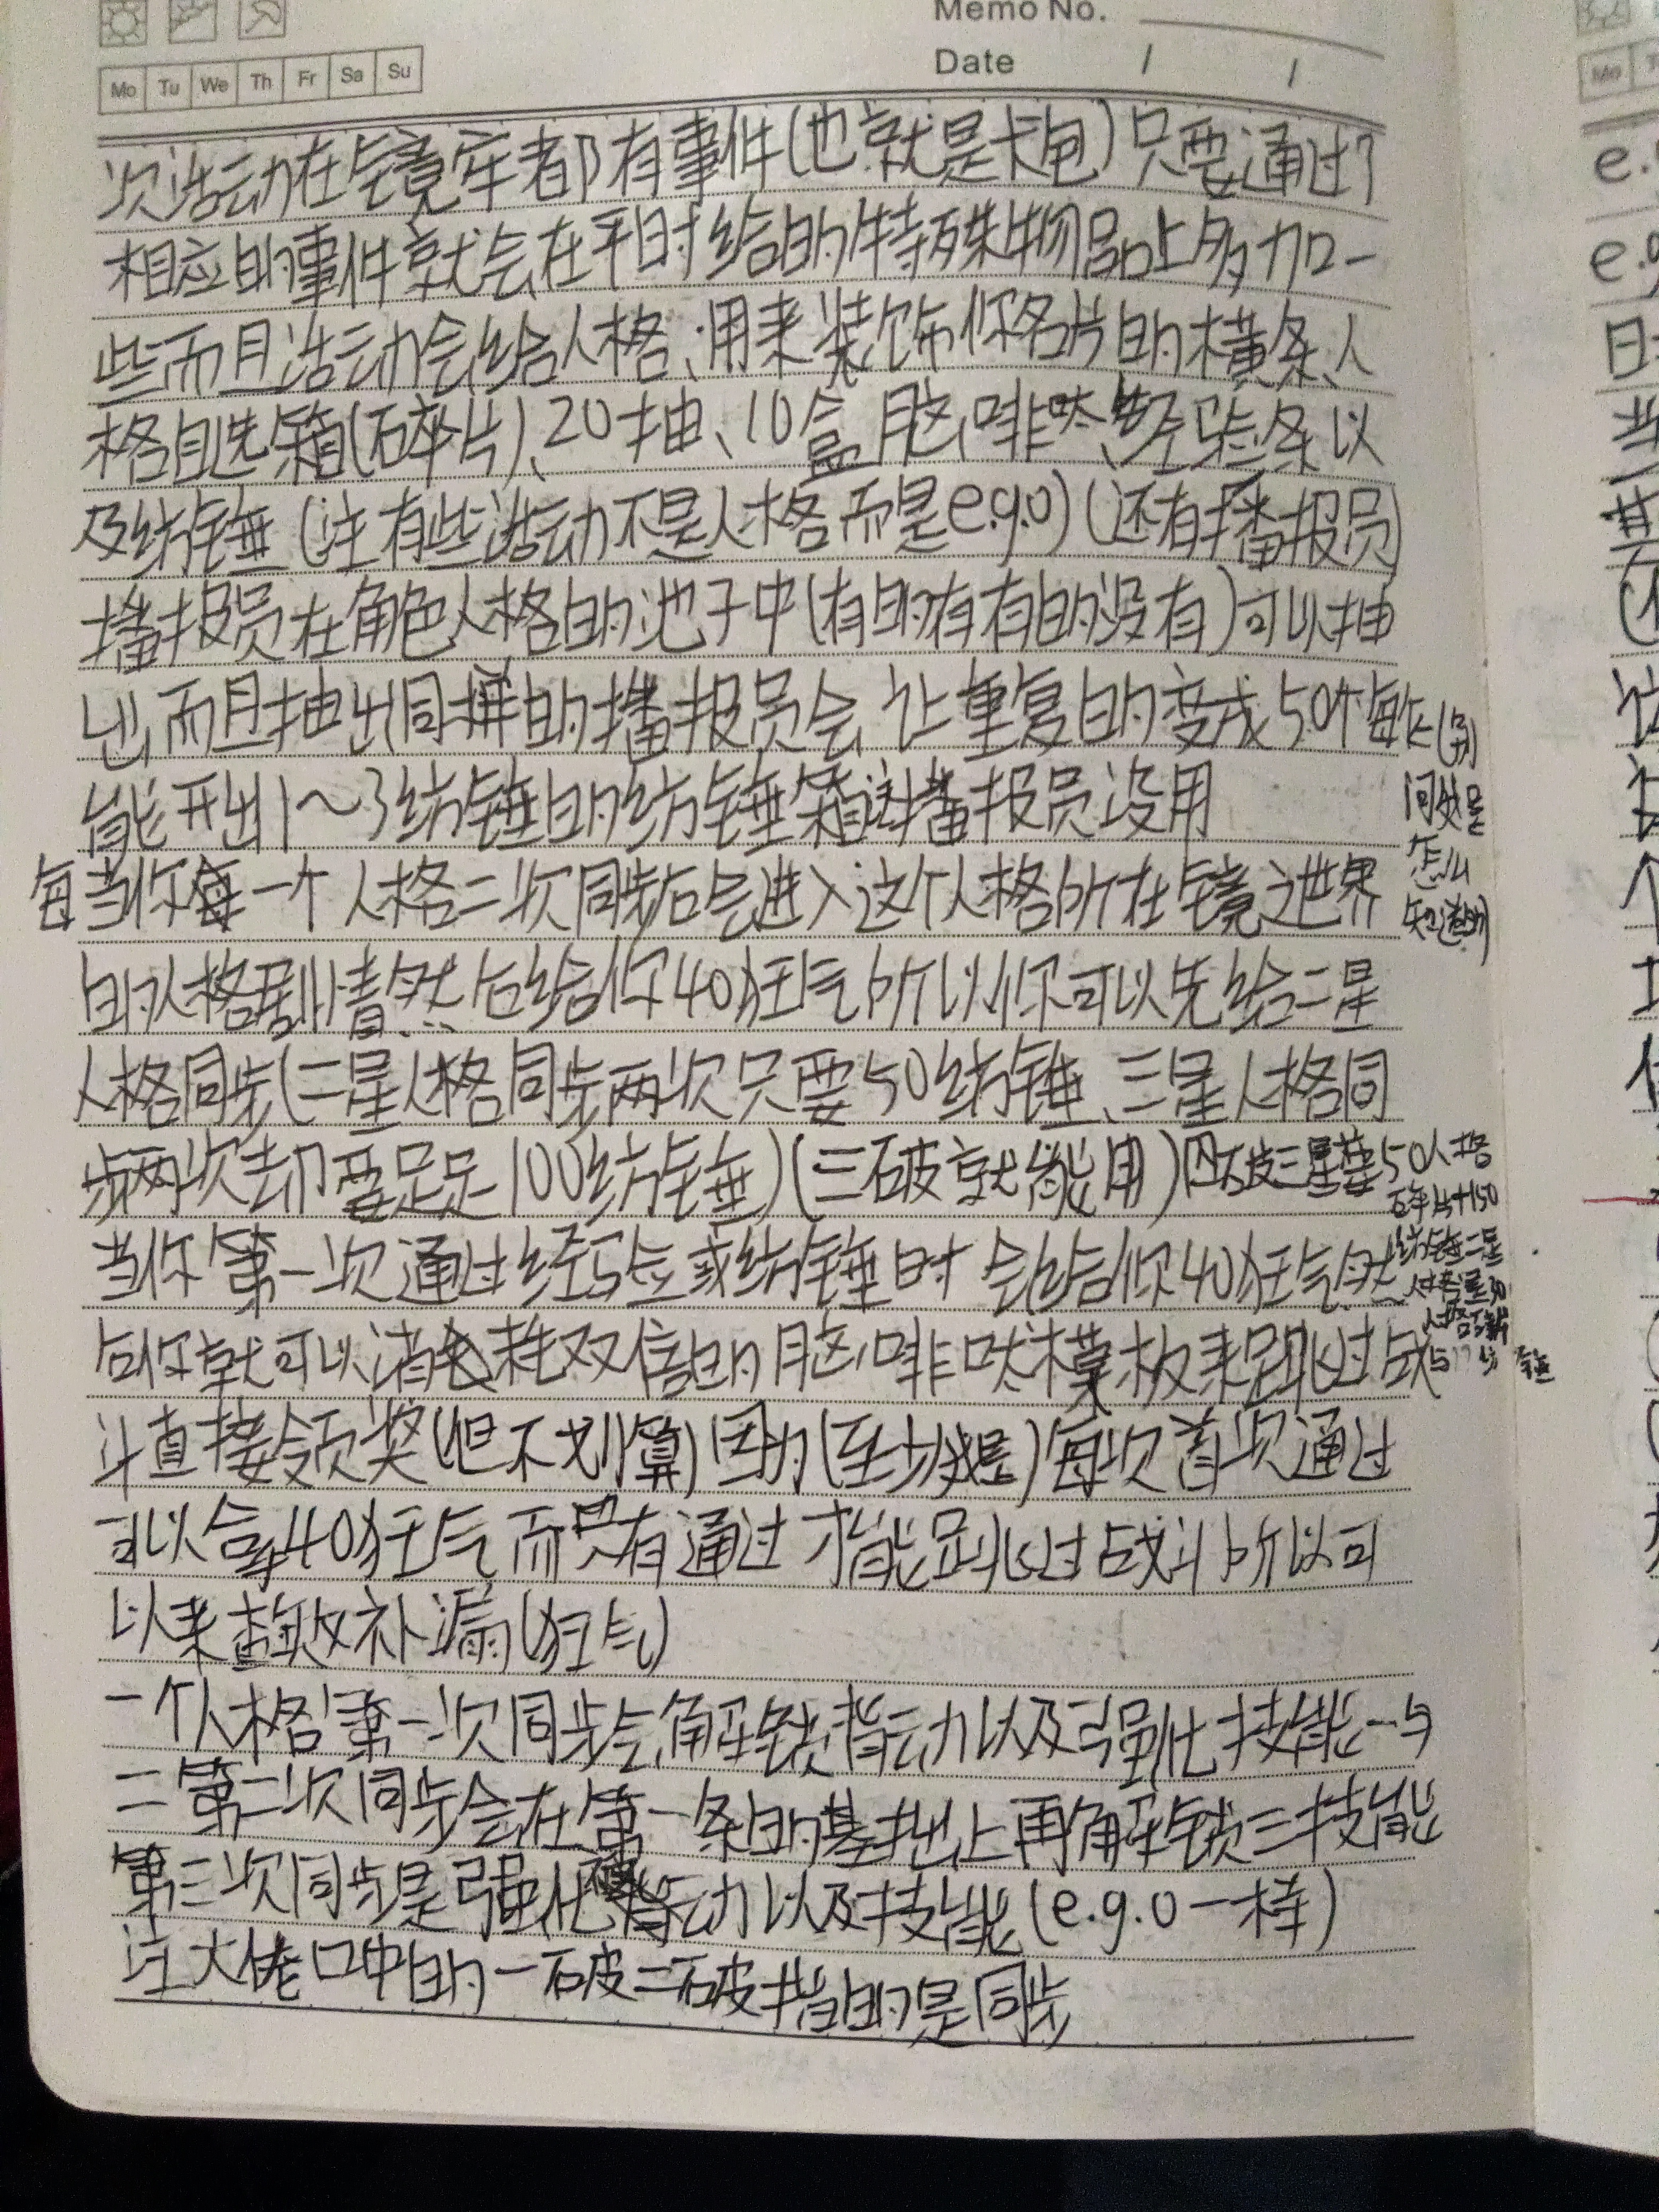 Memo No.
Date / /
Mo Tu We Th Fr Sa Su
次活动在镜牢都有事件(也就是卡包)只要通过了
相应的事件就会在平时给的特殊物品上多加一
些而且活动会给人格、用来装饰你名片的横条、人
格自选箱(碎片)、20抽、10盒脑啡肽、经验条以
及纺锤(注有些活动不是人格而是e.g.o)(还有播报员)
播报员在角色人格的池子中(有的有有的没有)可以抽
出而且抽出同样的播报员会让重复的变成50个每个
能开出1～3纺锤的纺锤箱播报员没用
(别
问我是
怎么
知道的)
每当你每一个人格二次同步后会进入这个人格所在镜之世界
的人格剧情然后给你40狂气所以你可以先给二星
人格同步(二星人格同步两次只要50纺锤、三星人格同
步两次却要足足100纺锤)(三破就能用)四破三星要50人格
碎片+150
纺锤二星
当你第一次通过经验或纺锤时会给你40狂气然
后你就可以消耗双倍的脑啡肽模板来跳过战
斗直接领奖(但不划算)因为(至少我是)每次首次通过
可以拿40狂气而只有通过才能跳过战斗所以可
以来查缺补漏(狂气)
一个人格第一次同步会解锁背动以及强化技能一与
二第二次同步会在第一条的基拙上再解锁三技能
第三次同步是强化背动以及技能(e.g.o一样)
注大佬口中的一破二破指的是同步
Mo
e.
e.g